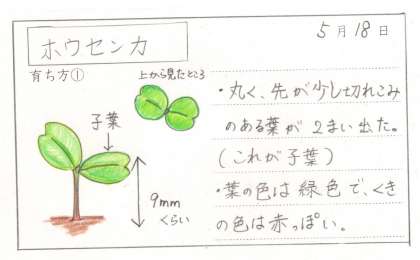 ホウセンカ
5月18日
育ち方①
上から見たところ
子葉
9mm
くらい
・丸く、先が少し切れこみ
のある葉が2まい出た。
(これが子葉)
・葉の色は緑色で、くき
の色は赤っぽい。